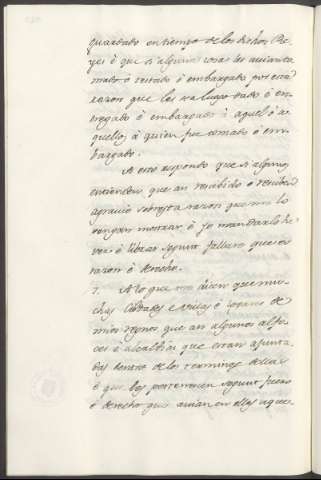 guardado en tiempo de los dichos Re-
yes è que si algunas cosas les avian to-
mado ò restado ò embargado por esta
razon que les sea luego dado è en-
tregado è embargado à aquel ò a-
quellos à quien fue tomado è em-
bargado.
A esto respondo que si algunos
entienden que an recibido ò reciben
agravio sobre esta razon que me lo
vengan mostrar è yo mandarlo he
ver è librar segunt fallare que es
razon è derecho.
7. A lo que me dicen que mu-
chas Cibdades è villas è logares de
mios regnos que an algunos alfo-
ces è alcaldias que estan ayunta-
das dentro de los terminos dellas
è que les pertenecen segunt fuero
è derecho que avian en ellos aque-